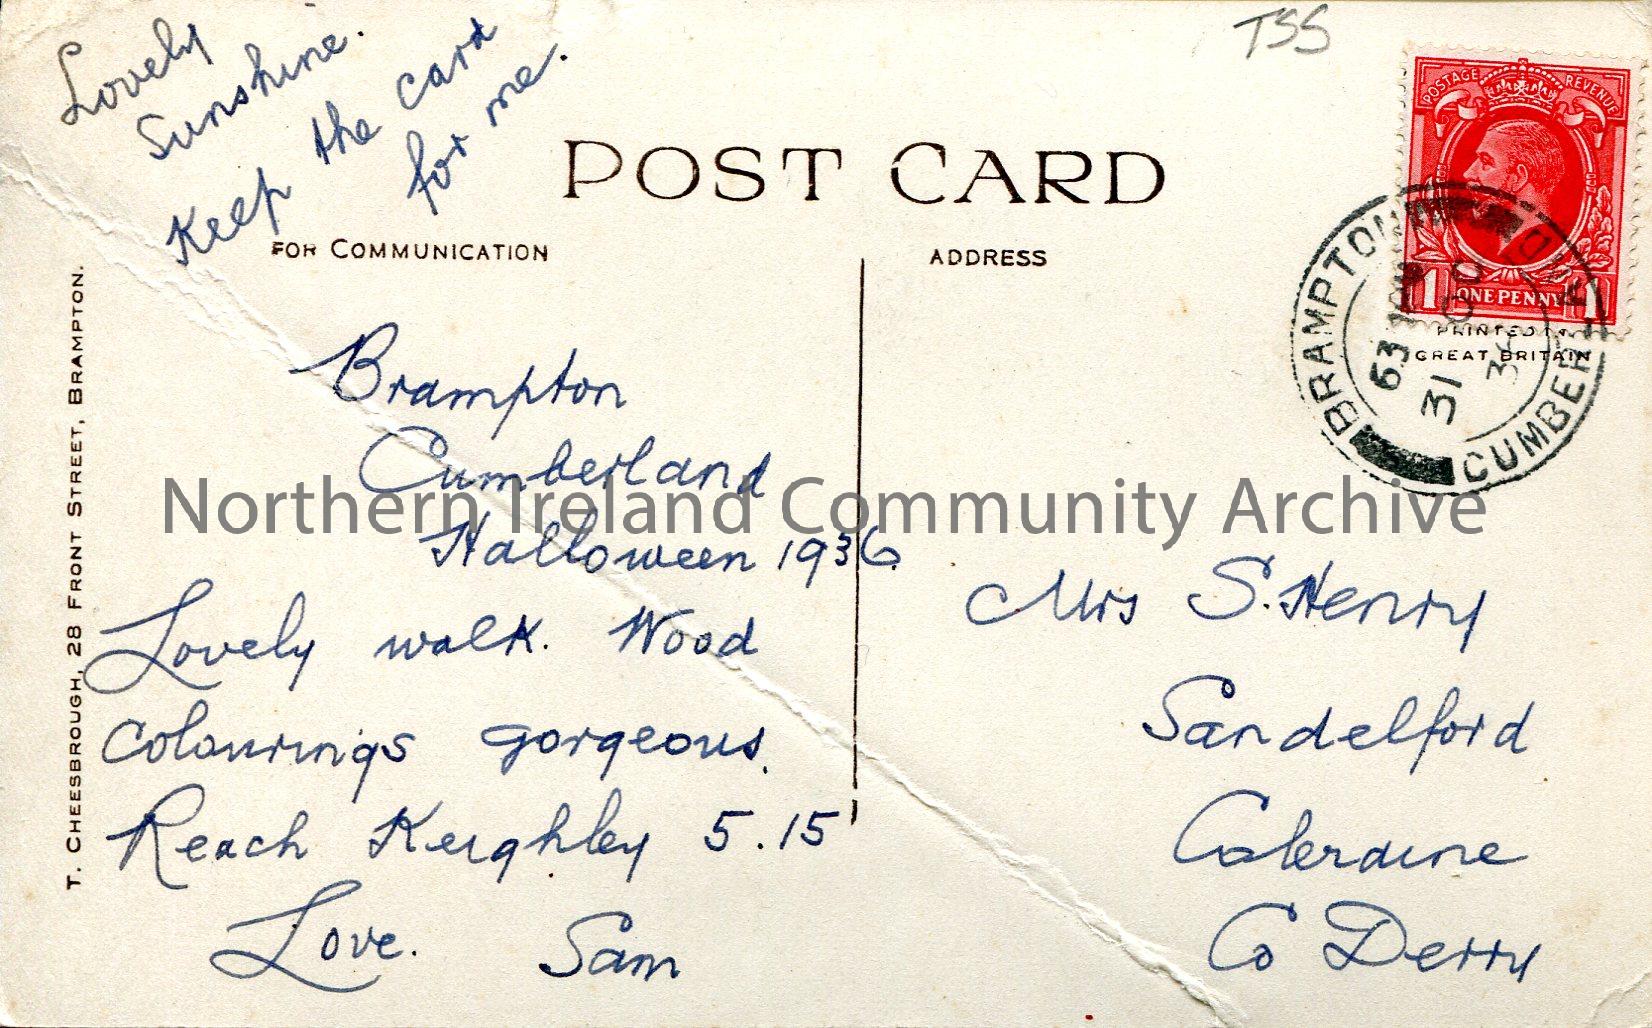 Lovely
Sunshine.
Keep the card
for me.
TSS
POST CARD
FOR COMMUNICATION
ADDRESS
POSTAGE REVENUE
1 ONE PENNY 1
PRINTED IN
GREAT BRITAIN
BRAMPTON
CUMBERLAND
63
31
36
T. CHEESBROUGH, 28 FRONT STREET, BRAMPTON.
Brampton
Cumberland
Halloween 1936.
Lovely walk. Wood
colourings gorgeous.
Reach Keighley 5.15
Love. Sam
Mrs S. Henry
Sandelford
Coleraine
Co Derry
Northern Ireland Community Archive